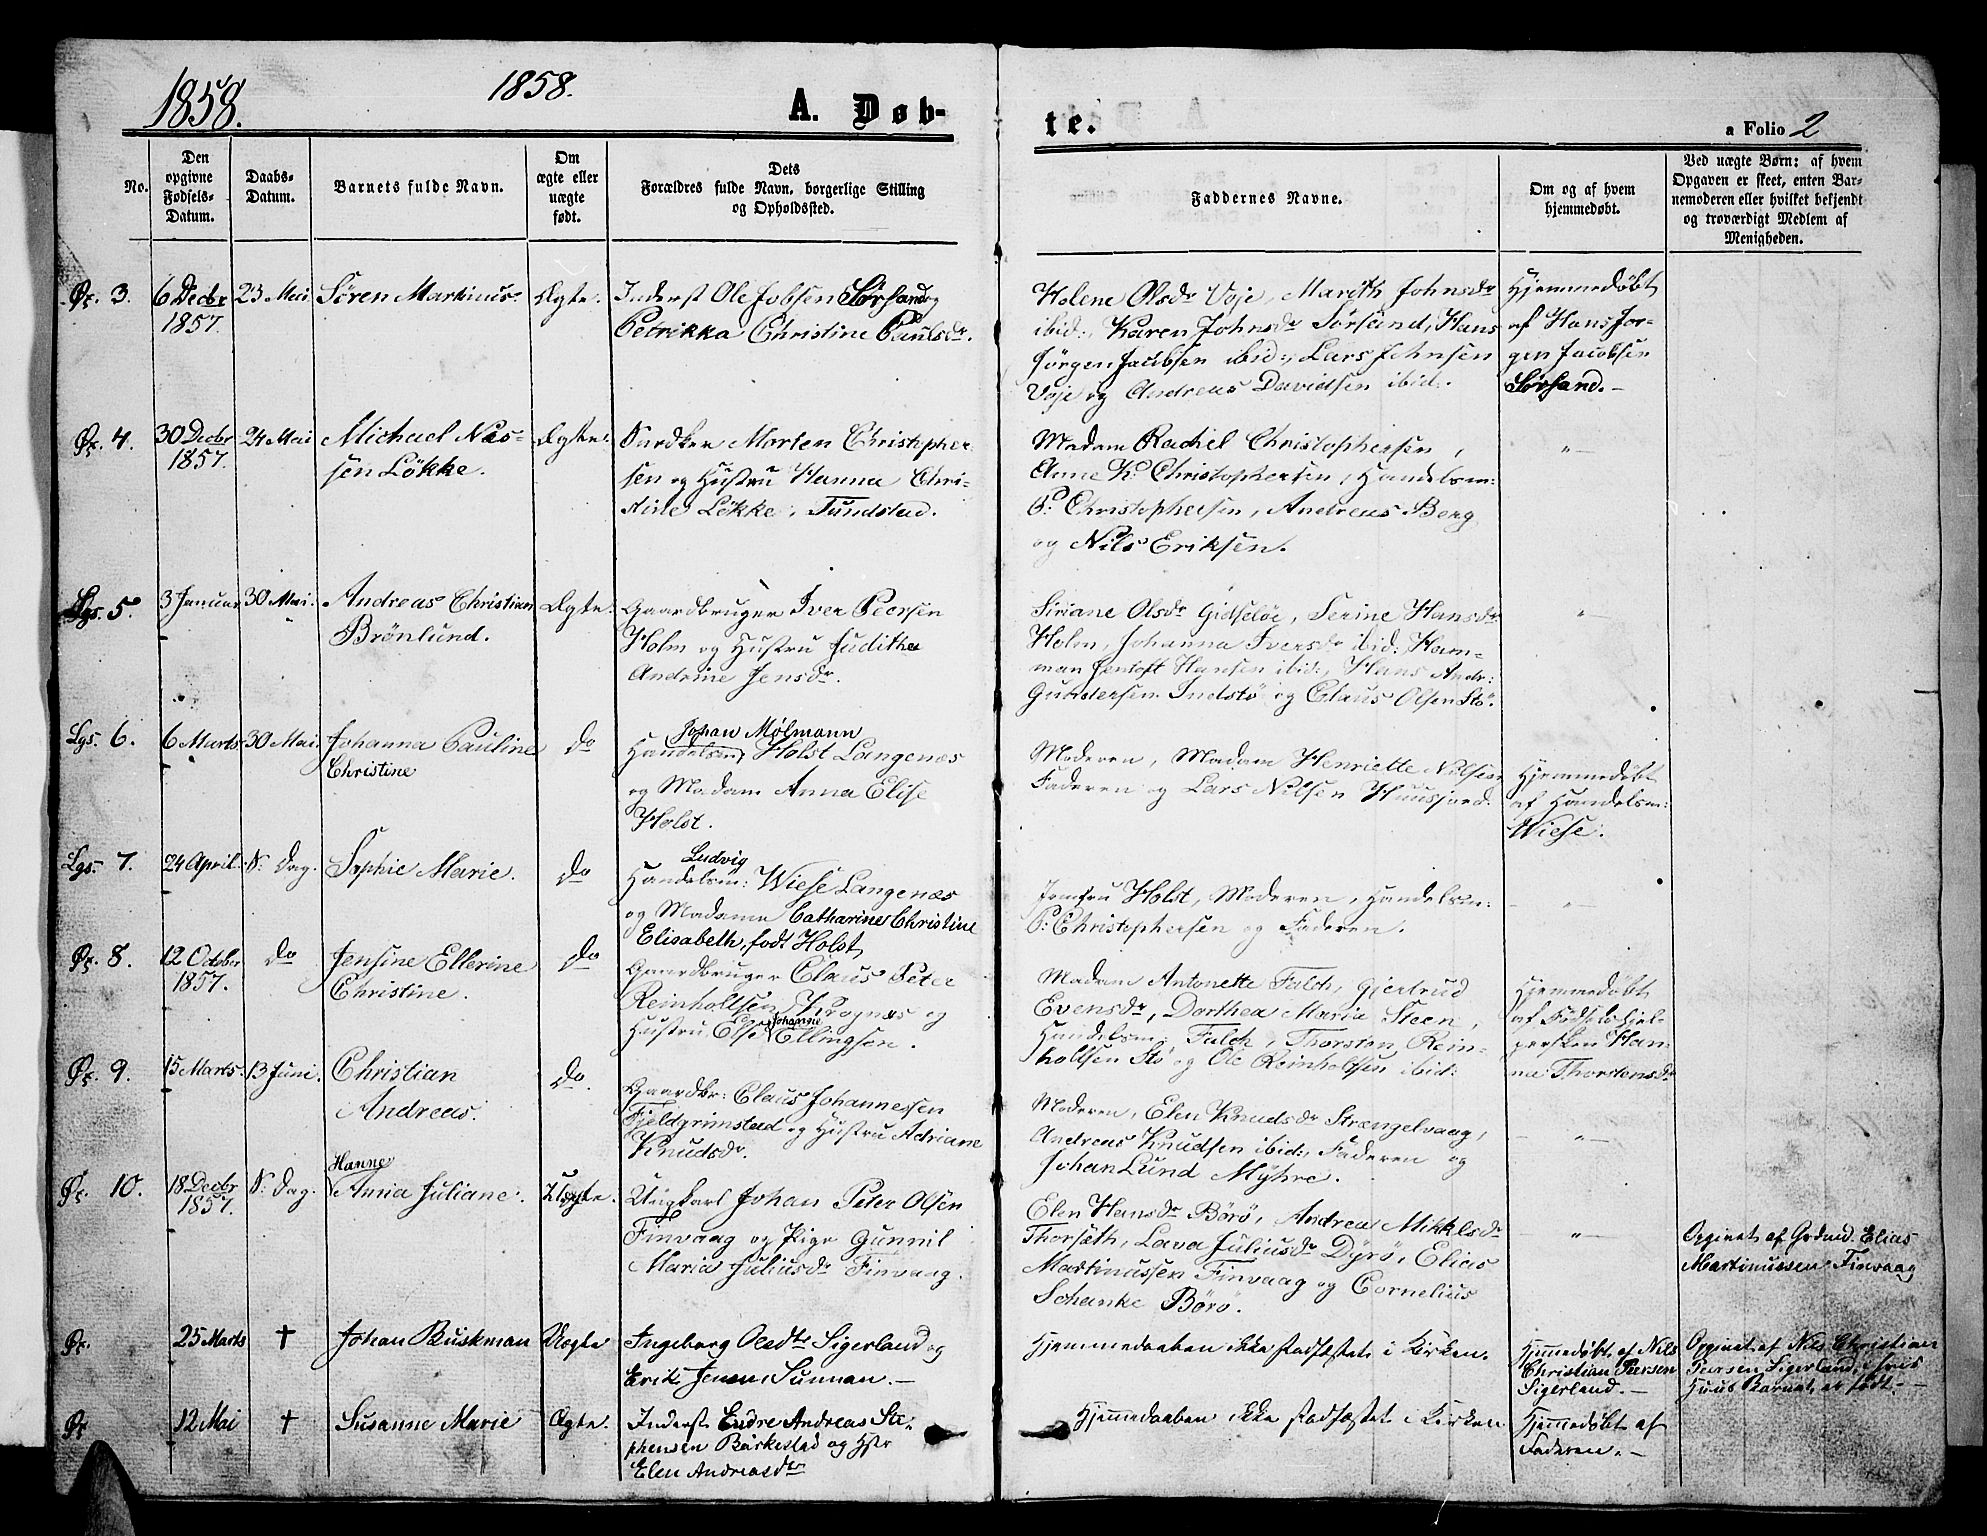 1858.
1858.
A. Døb-
te.
a Folio 2
No.
Den opgivne Fødsels-Datum.
Daabs-Datum.
Barnets fulde Navn.
Om ægte eller uægte født.
Dets Forældres fulde Navn, borgerlige Stilling og Opholdssted.
Faddernes Navne.
Om og af hvem hjemmedøbt.
Ved uægte Børn: af hvem Opgaven er skeet, enten Barnemoderen eller hvilket bekjendt og troværdigt Medlem af Menigheden.
Øx. 3.
6 Decbr 1857.
23 Mai
Søren Martinus.
Ægte.
Inderst Ole Jobsen Sørsand og
Petrikka Christine Paulsdr.
Helene Olsdr Voje, Marith Johnsdr
ibid:, Karen Johnsdr Sørsand, Hans
Jørgen Jacobsen ibid:, Lars Johnsen
Voje og Andreas Davidsen ibid:.
Hjemmedøbt
af Hans Jør-
gen Jacobsen
Sørsand.
Øx. 4.
30 Decbr 1857.
24 Mai
Michael Nis-
sen Løkke.
Ægte.
Morten Christopher-
sen og Hustru Hanna Chri-
stine Løkke, Tundstad.
Madam Rachel Christophersen,
Anne K. Christophersen, Handelsm:
P: Christophersen, Andreas Berg
og Nils Eriksen.
"
Lgs. 5.
3 Januar
30 Mai.
Andreas Christian
Brønlund.
Ægte.
Gaardbruger Iver Peersen
Holm og Hustru Juditha
Andrine Jensdr.
Siriane Olsdr Gidseløe, Serine Hansdr
Holm, Johanna Iversdr ibid: Ham-
man Jentoft Hansen ibid:, Hans Andr:
Gundersen Indstø og Claus Olsen Stø.
"
Lgs. 6.
6 Marts
30 Mai
Johanna Pauline
Christine
do
Johan Mølmann
Handelsm: Holst Langenæs
og Madam Anna Elise
Holst.
Moderen, Madam Henriette Nilsen
Faderen og Lars Nilsen Huusjord.
Hjemmedøbt
af Handelsm:
Wiese.
Lgs. 7.
24 April.
S: Dag.
Sophie Marie.
do
Ludvig
Handelsm: Wiese Langenæs
og Madame Catharine Christine
Elisabeth, født Holst
Jomfru Holst, Moderen, Handelsm:
P: Christophersen og Faderen.
"
Øx. 8.
12 October 1857.
do
Jensine Ellerine
Christine.
do
Gaardbruger Claus Peter
Reinholtsen Krognæs og
Hustru Else Johanne Ellingsen.
Madam Antonette Falch, Gjertrud
Evensdr, Dorthea Maria Steen,
Handelsm: Falch, Thorsten Rein-
holtsen Stø og Ole Reinholtsen ibid:
Hjemmedøbt
af Fødselshjel-
persken Han-
na Thorstensdr
Øx. 9.
15 Marts.
13 Juni.
Christian
Andreas.
do.
Gaardbr: Claus Johannessen
Fjeldgrimstad og Hustru Adriane
Knudsdr.
Moderen, Elen Knudsdr Strængelvaag,
Andreas Knudsen ibid:, Faderen og
Johan Lund Myhre.
"
Øx. 10.
18 Decbr 1857.
S: Dag.
Hanne
Anna Juliane.
Uægte.
Ungkarl Johan Peter Olsen
Finvaag og Pige Gunnil
Maria Juliusdr Finvaag.
Elen Hansdr Børø, Andrea Mikkelsdr
Thorsæth, Lava Juliusdr Dyrø, Elias
Martinussen Finvaag og Cornelius
Schanke Børø.
"
Opgivet af Grdmd. Elias
Martinussen Finvaag
Øx.
25 Marts
†
Johan Buskman
Uægte
Ingeborg Olsdtr Sigerland og
Erik Jensen Sunnan.
Hjemmedaaben ikke stadfæstet i Kirken.
Hjemmedøbt af Nils
Christian Peersen
Sigerland.
Opgivet af Nils Christian
Peersen Sigerland, i hvis
Huus Barnet er født.
Øx
12 Mai
†
Susanne Marie
Ægte.
Inderst Endre Andreas Ste-
phensen Barkestad og Hstr
Elen Andreasdtr
Hjemmedaaben ikke stadfæstet i Kirken
Hjemmedøbt af
Faderen.